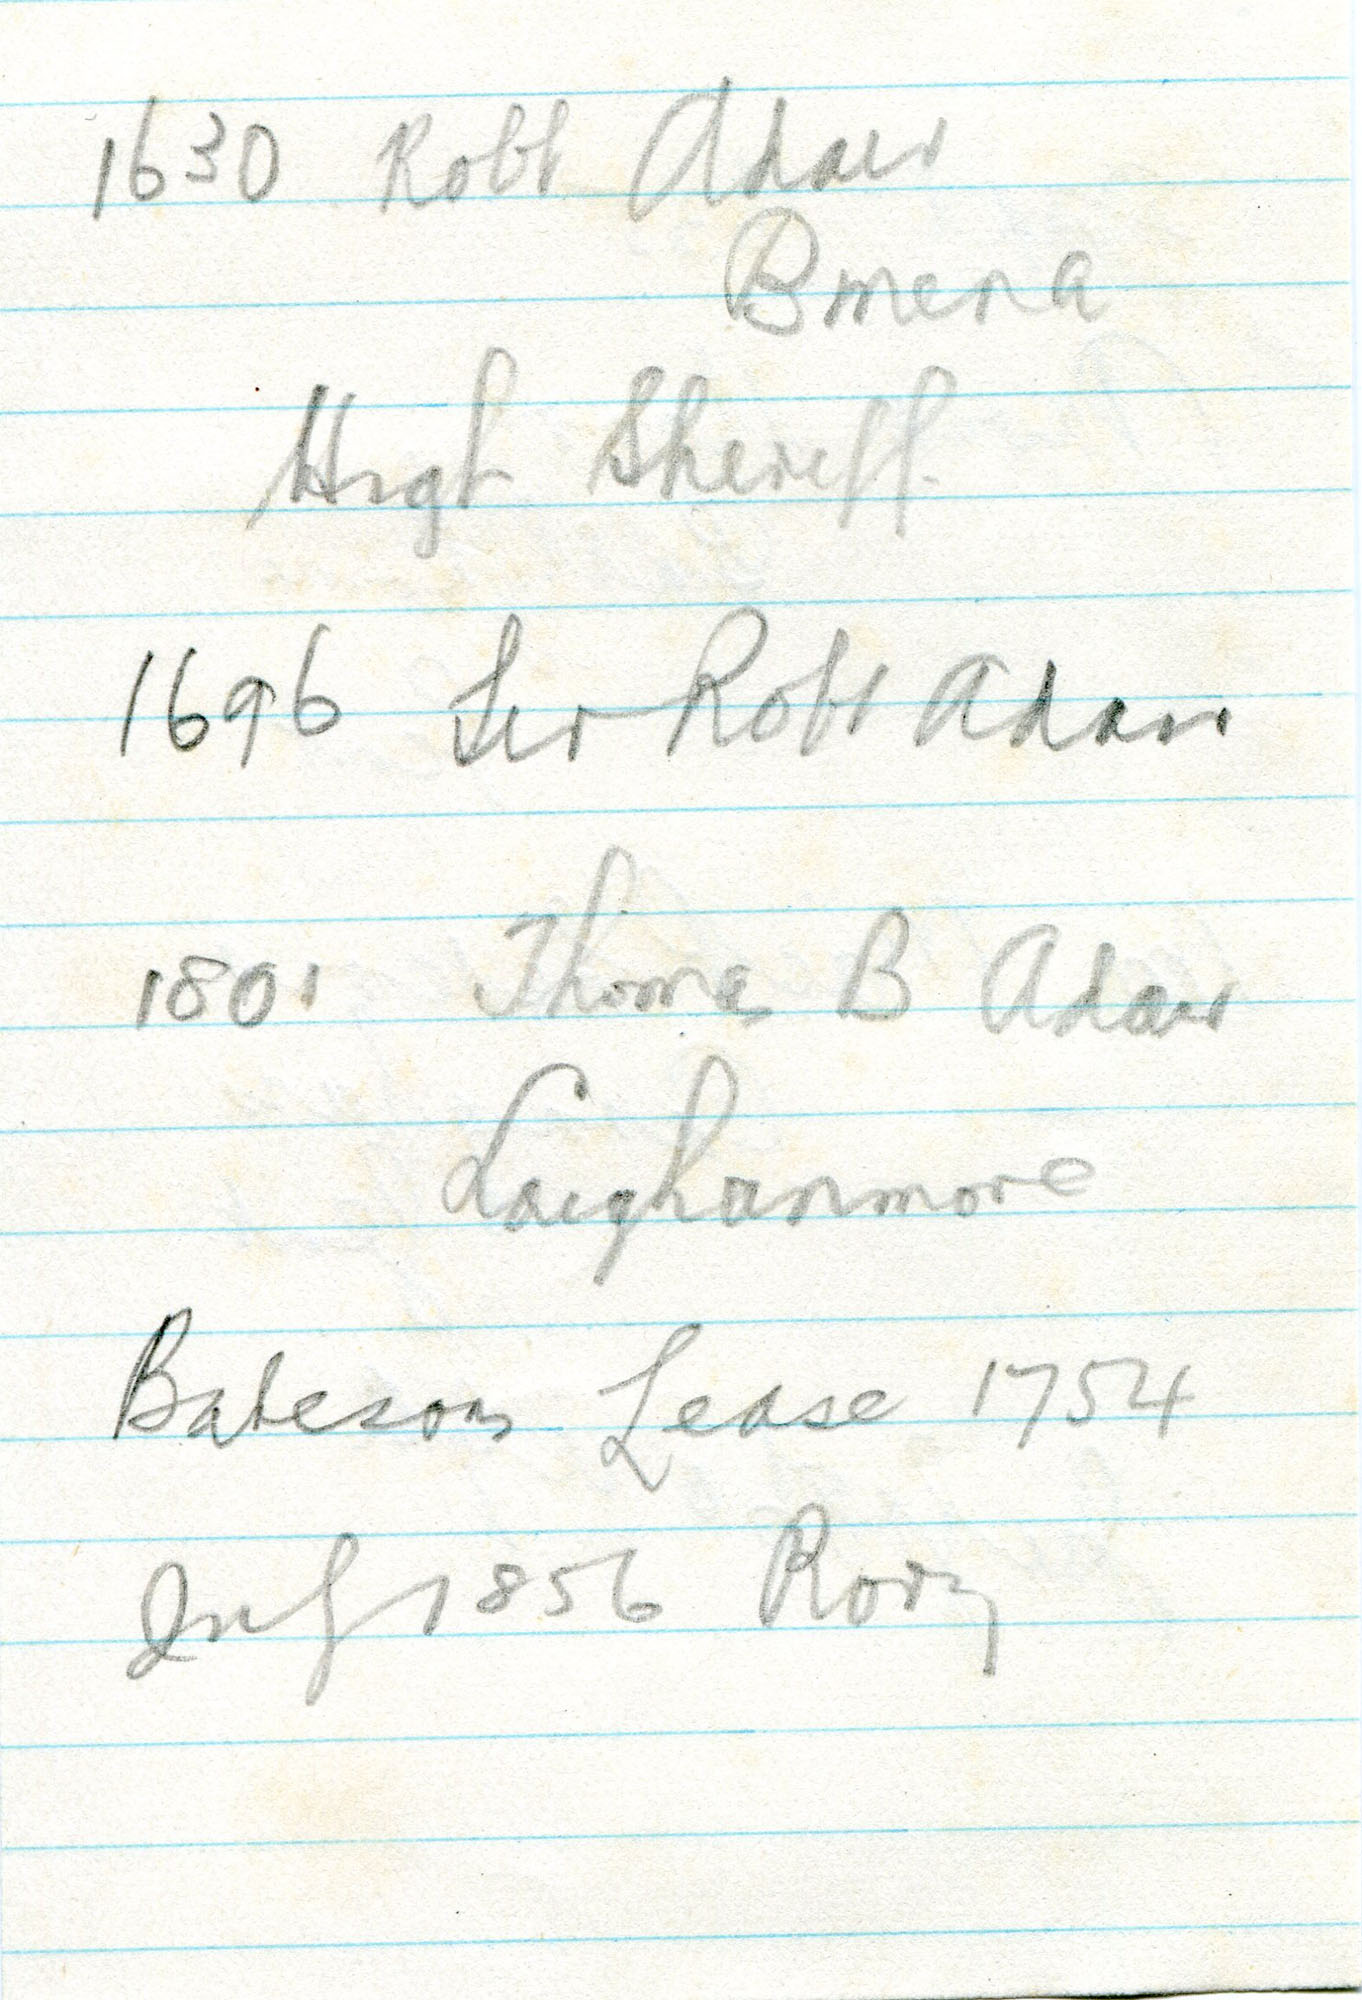 1630 Robt Adair
Bmena
High Sheriff.
1696 Sir Robt Adair
1801 Thomas B Adair
Loughanmore
Bateson Lease 1754
July 1856 Rory